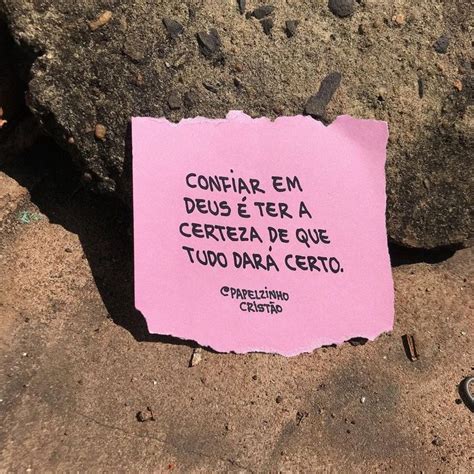 CONFIAR EM
DEUS É TER A
CERTEZA DE QUE
TUDO DARÁ CERTO.
@PAPELZINHO
CRISTÃO